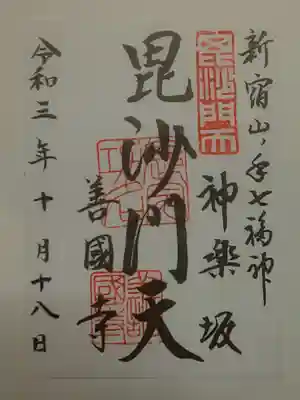 新宿山ノ手七福神
神樂坂
毘沙門天
毘沙門天
善國寺
令和三年十月十八日